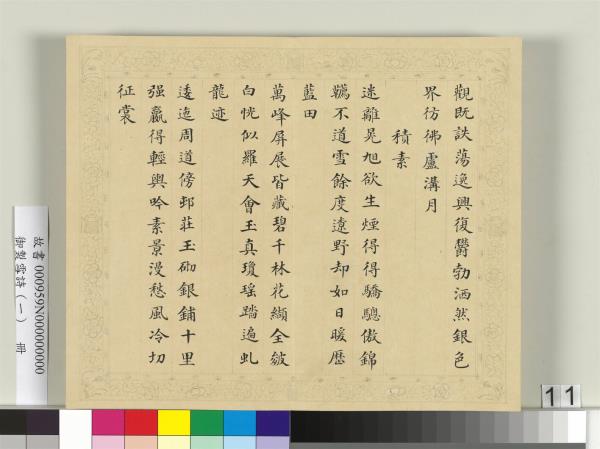 觀既詄蕩逸興復欝勃洒然銀色
界彷彿盧溝月
積素
迷離晃旭欲生煙得得驕驄傲錦
韉不道雪餘度遠野却如日暖歷
藍田
萬峰屏展皆藏碧千林花纈全皴
白恍似羅天會玉真瓊瑤踏遍虬
龍迹
逶迤周道傍邨莊玉砌銀鋪十里
强贏得輕輿吟素景漫愁風冷切
征裳
故書 000959N000000000
御製雪詩（一） 冊
11